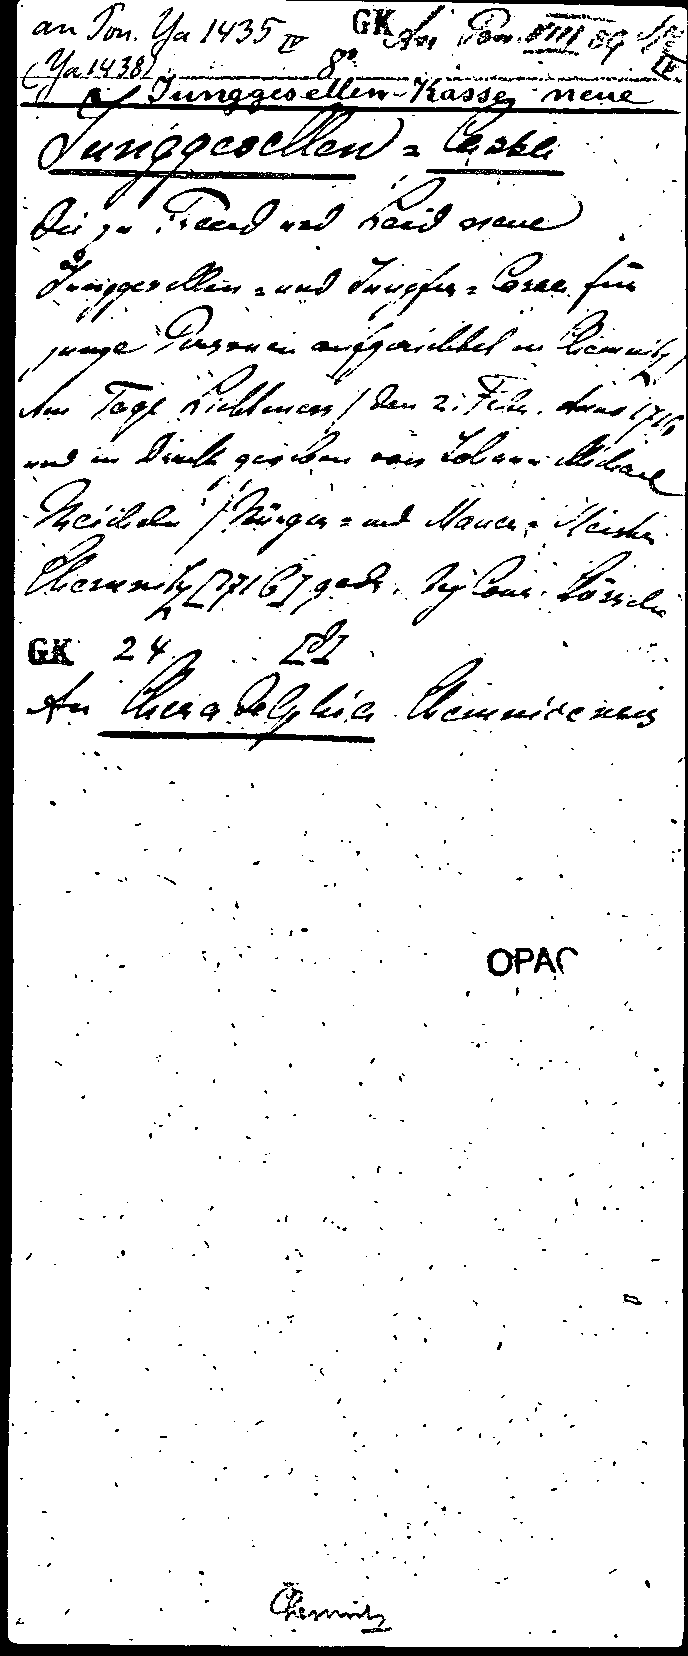 an Pon. Ya 1435 IV GK An Pon. VIII 89
(Ya 1438) 8°
Junggesellen-Kasse, neue
Junggesellen = Casse
Die zu Freud und Leid neue
Junggesellen = und Jungfer = Cassa für
junge Personen aufgerichtet in Chemnitz /
Am Tage Lichtmess / den 2. Febr. Anno 1716
und in Druck gegeben von Johann Michael
/ Bürger = und Mauer = Meister
Chemnitz [1716] gedr. bey Conr. Stösseln
GK 24
An Chemnicensis
OPAC
Chemnitz